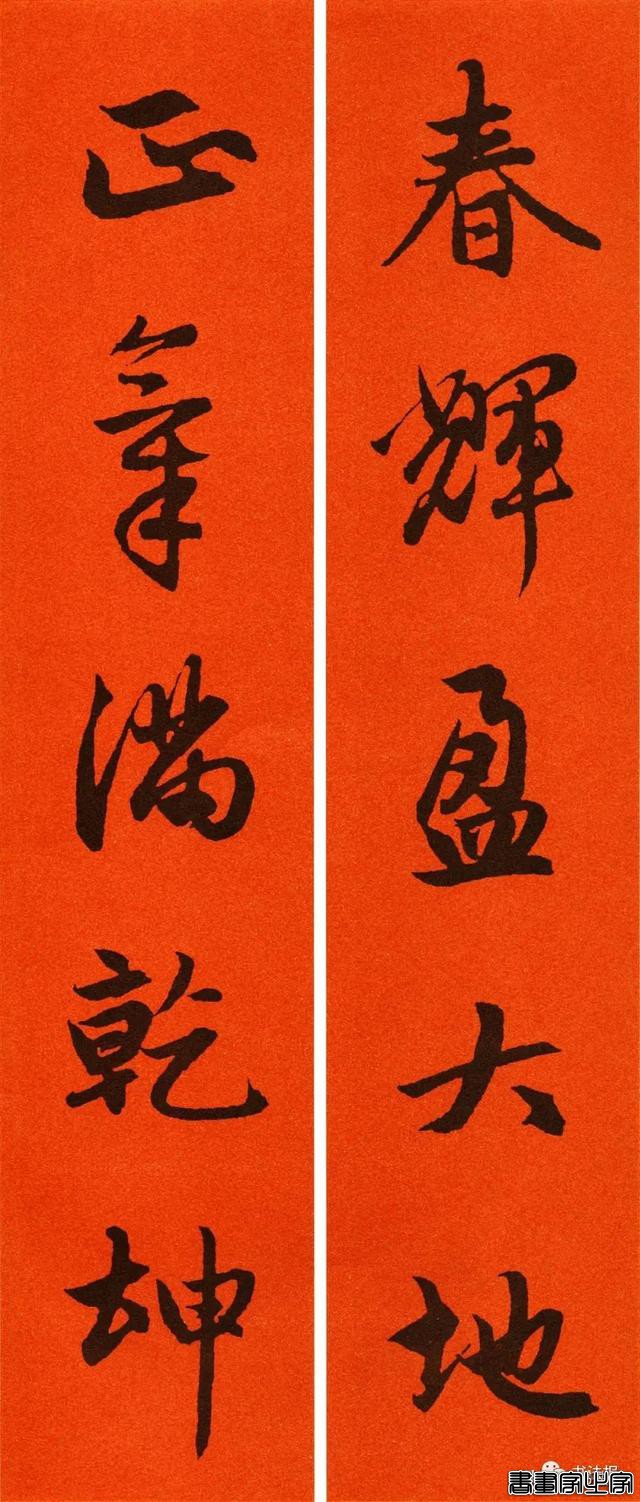 春輝盈大地
正氣滿乾坤
书法报
書畫家必字